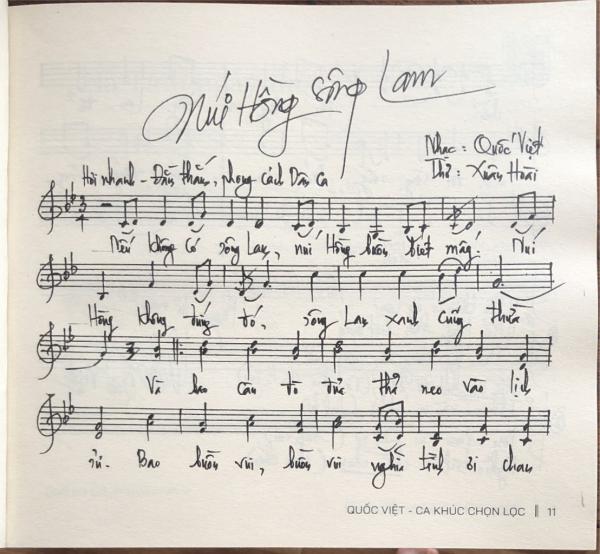 Núi Hồng sông Lam
Nhạc: Quốc Việt
Thơ: Xuân Hoài
Hơi nhanh - Đằm thắm, phong cách Dân Ca
Nếu không có sông Lam, núi Hồng buồn biết mấy! Núi
Hồng không đứng đó, sông Lam xanh cũng thừa
Và bao câu hò từng thả neo vào lịch
sử. Bao buồn vui, buồn vui nghĩa tình ơi chan
QUỐC VIỆT - CA KHÚC CHỌN LỌC 11